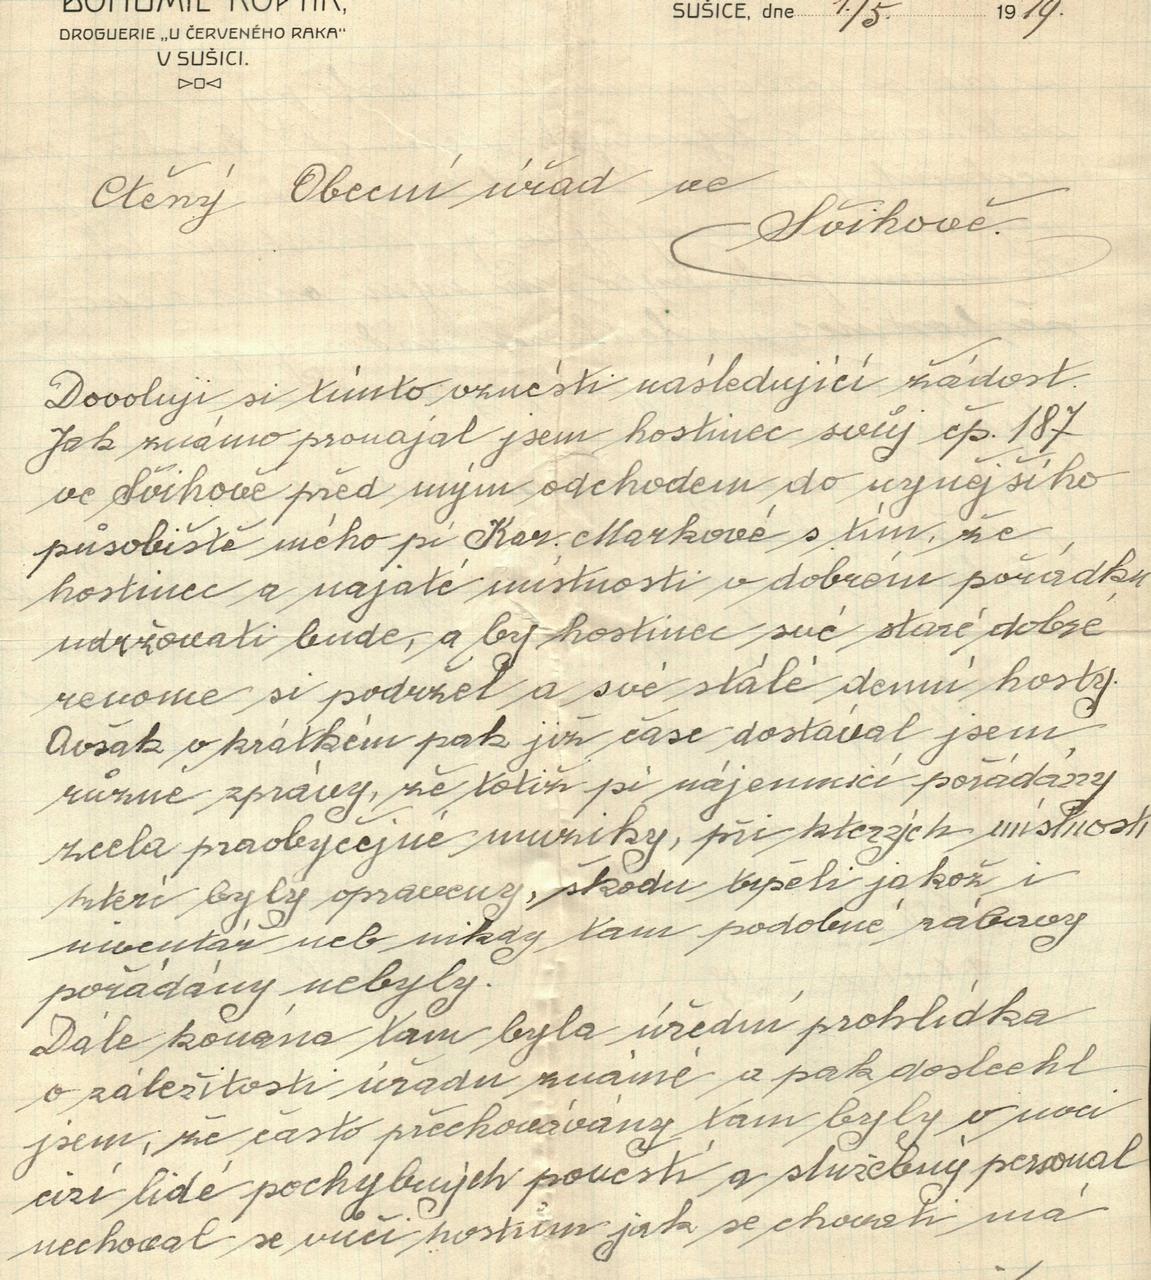 DROGUERIE „U ČERVENÉHO RAKA“
V SUŠICI.
SUŠICE, dne 1/5. 1919.
Ctěný Obecní úřad ve
Švihově.
Dovoluji si tímto vznésti následující žádost.
Jak známo pronajal jsem hostinec svůj čp. 187
ve Švihově před mým odchodem do nynějšího
působiště mého pí Kar. Markové s tím, že
hostinec a najaté místnosti v dobrém pořádku
udržovati bude, a by hostinec své staré dobré
renome si podržel a své stálé denní hosty.
Avšak v krátkém pak již čase dostával jsem
různé zprávy, že totiž pí nájemnicí pořádány
zcela praobyčejné muziky, při kterých místnosti
kteří byly opraveny, škodu trpěli jakož i
inventář neb nikdy tam podobné zábavy
pořádány nebyly.
Dále konána tam byla úřední prohlídka
o záležitosti úřadu známé a pak doslechl
jsem, že často přechovávány tam byly v noci
cizí lidé pochybných pověstí a služebný personal
nechoval se vůči hostům jak se chovati má